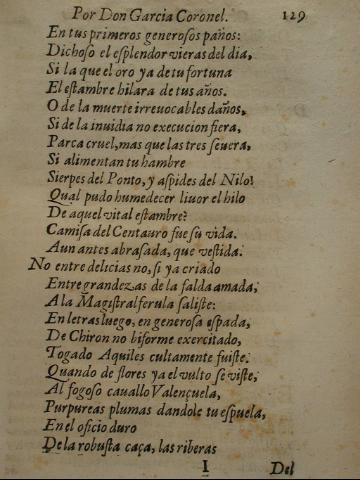 Por Don Garcia Coronel. 129
En tus primeros generosos paños:
Dichoso el esplendor vieras del dia,
Si la que el oro ya de tu fortuna
El estambre hilara de tus años.
O de la muerte irreuocables daños,
Si de la inuidia no execucion fiera,
Parca cruel, mas que las tres seuera,
Si alimentan tu hambre
Sierpes del Ponto, y aspides del Nilo?
Qual pudo humedecer liuor el hilo
De aquel vital estambre?
Camisa del Centauro fue su vida.
Aun antes abrasada, que vestida.
No entre delicias no, si ya criado
Entre grandezas de la falda amada,
A la Magistral ferula saliste:
En letras luego, en generosa espada,
De Chiron no biforme exercitado,
Togado Aquiles cultamente fuiste.
Quando de flores ya el vulto se viste,
Al fogoso cauallo Valençuela,
Purpureas plumas dandole tu espuela,
En el oficio duro
De la robusta caça, las riberas
I Del